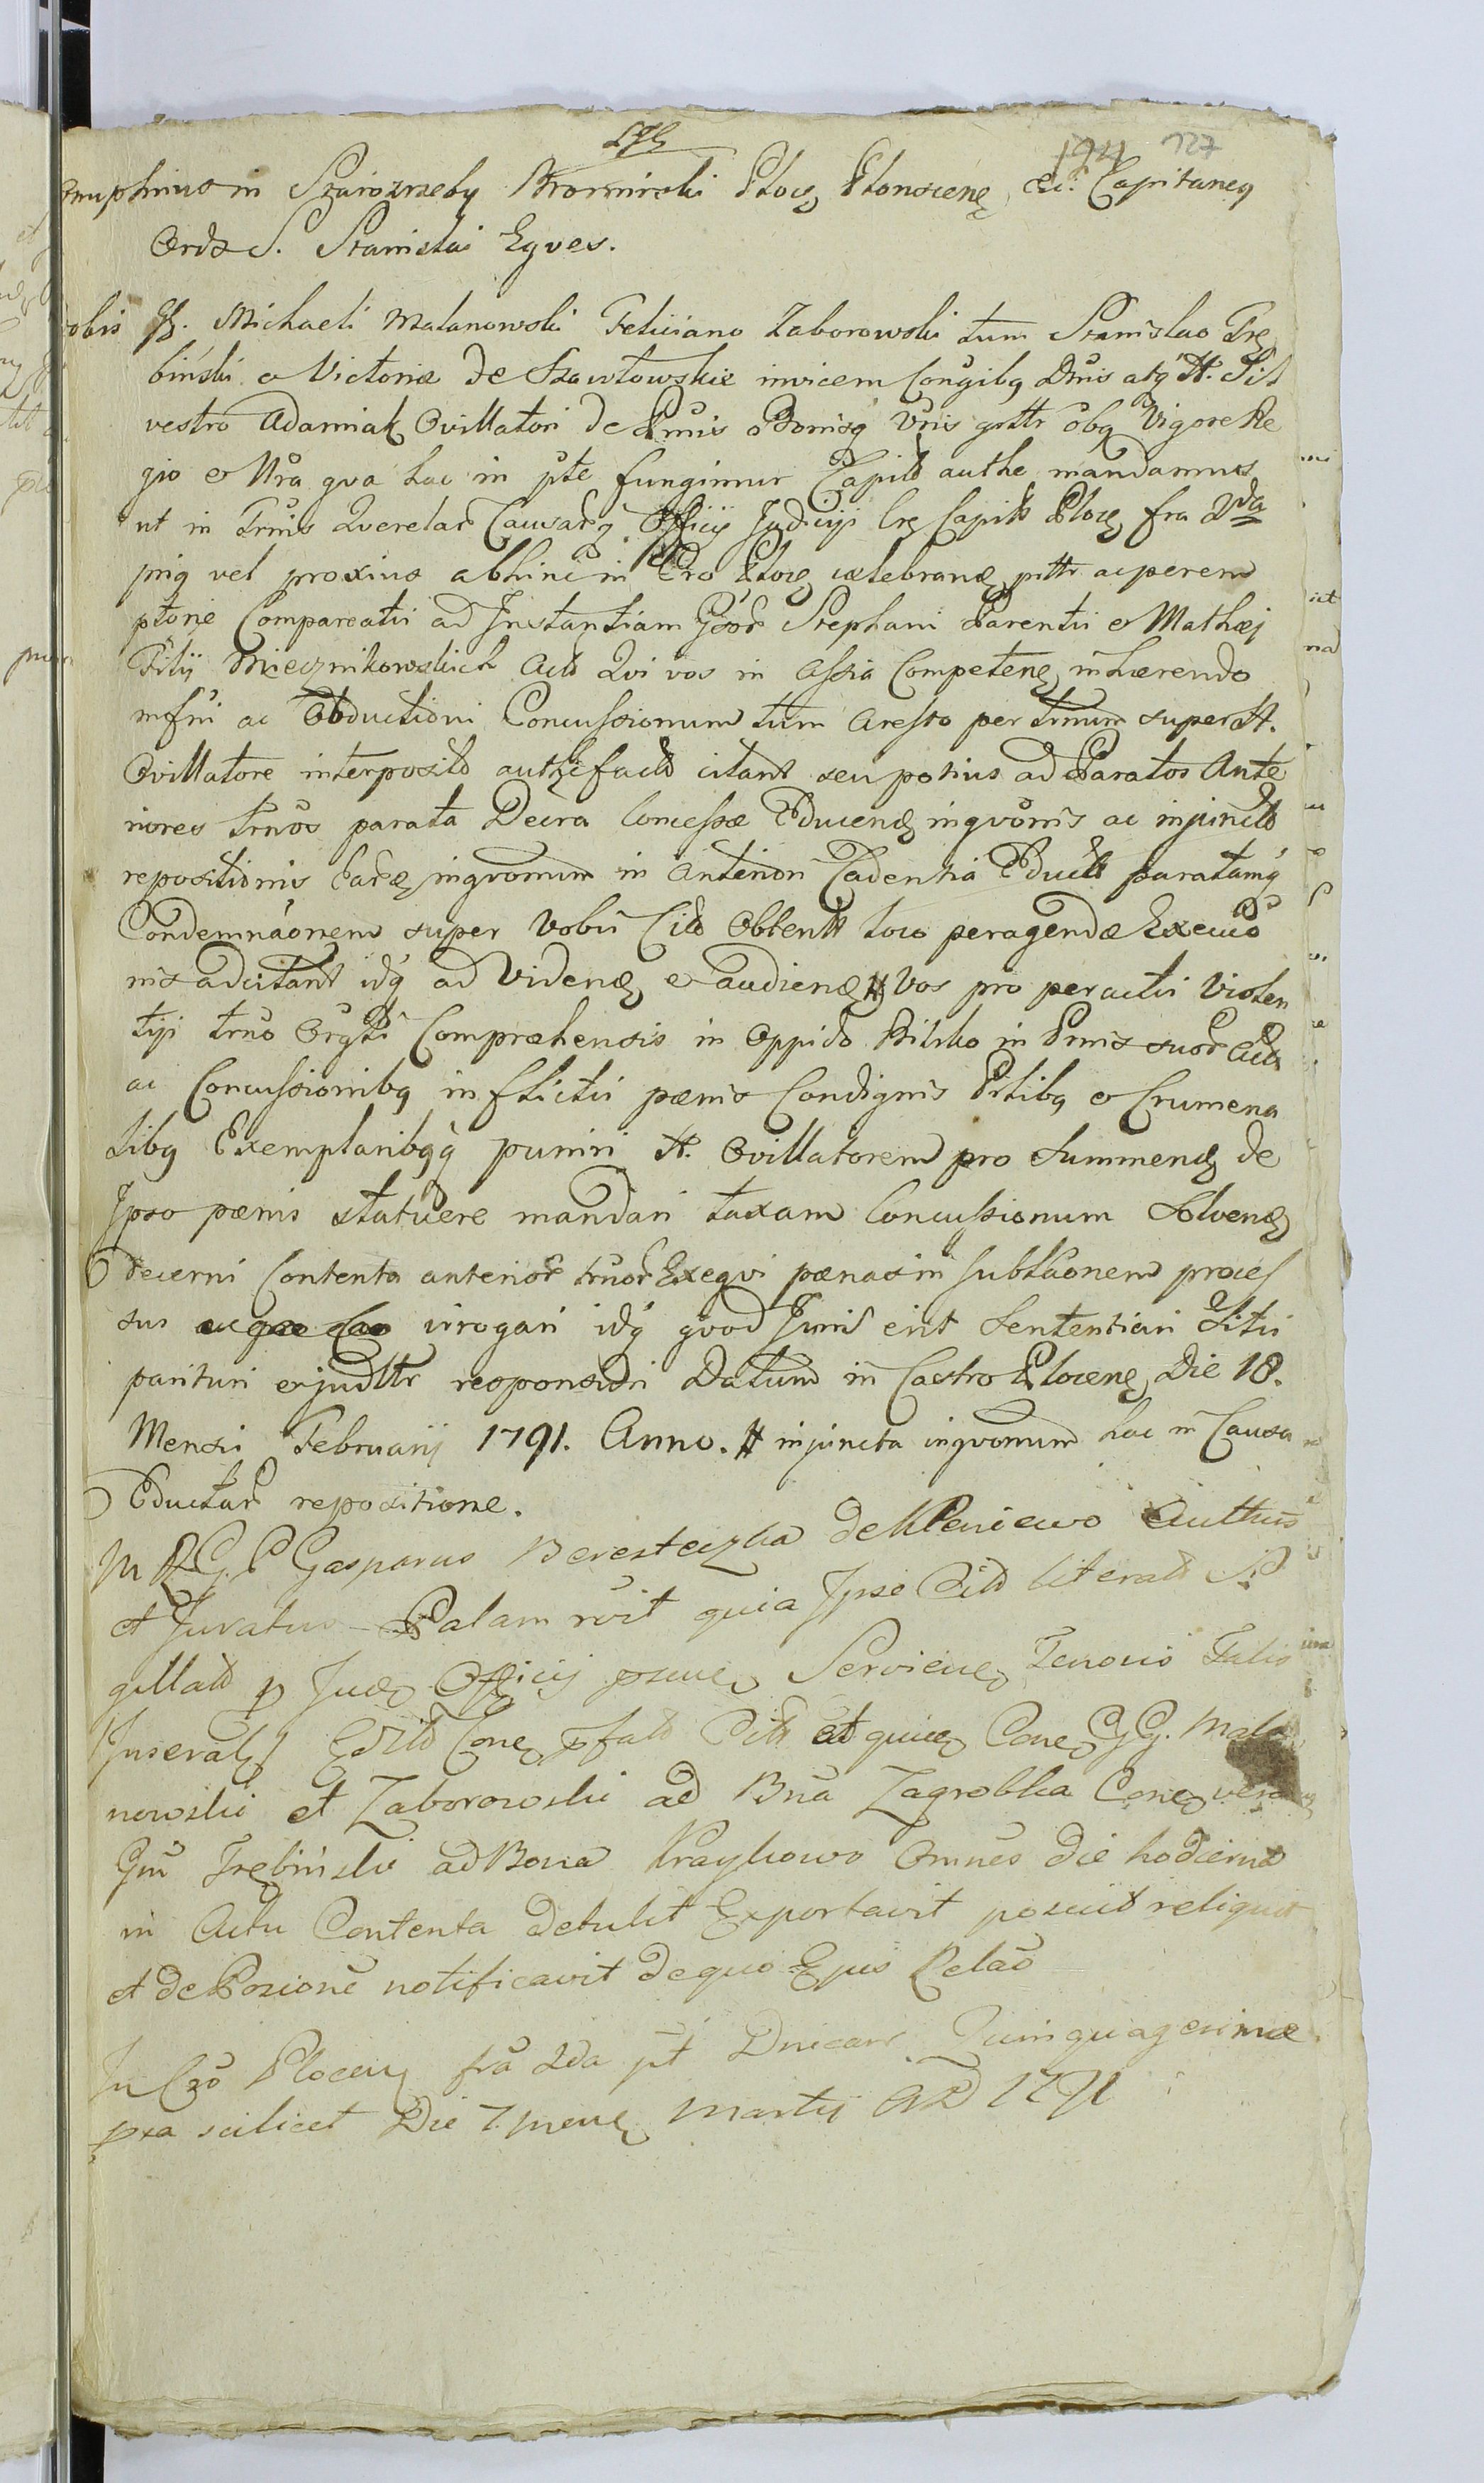 194 127
Onuphrius in Szaiozrzeby Bromirski Ploc̨ Plonscenȩ Etc̃ Capitaneq
Ord̃s S. Stanislai Eqves.
Vobis GG. Michaeli Malanowski Feliciano Zaborowski tum Stanislao Trę
binski e Victoriæ de Szawłowskie invicem Cõngibq Dnis atq́ H. Sil
vestro Adamiak Ovillatori de Prmis Bonisq́ Vris grttr õbq Vigore Re
gio e Nra qva hac in pte fungimur Capild authe mandamus
ut in Trmis Querelar Causarq́ Officij Judicÿ Crȩ Capitł Plocȩ fra 2da
priq vel proxius abhinc in Cro Plocȩ celebranȩ pttr ac perem
ptorie Compareatis ad Instantiam Gsor Stephani Parentis e Mathæj
Filij Miecznikowskich Act Qvi vos in Assia Competenȩ inhærendo
mfni ac Obductioni Concussionum tum Aresto per trmum super H.
Ovillatore interposito authefacto citant seu potius ad Paratos Ante
riores trnos parata Decra Concessæ Educenȩ inqvõnis ac injuncto
repositionis Earȩ inqvonum in Anteriori Cadentia Educt paratamq́
Condemnãonem super Vobis Cito Obtentt loco peragendæ Execuõ
nis adcitant idq́ ad Videnȩ e audienȩ # Vos pro peractis Violen
tiji trno Orgłi Compræhensis in Oppido Bilsko in Prmis suor Acts
ac Concussionibq inflictis pænis Condignis Prtibq e Crumena
libq Exemplaribqq́ puniri H. Ovillatorem pro Summenȩ de
Ipso pænis statuere mandari taxam Concussionum Solvenȩ
decerni Contenta anterior trnor Exeqvi pænas in subllaonem proces
sus irrogari idq́ qvod Juris erit Sententiari Litis
parituri e judltr responsuri Datum in Castro Plocenȩ Die 18.
Mensis Februarij 1791. Anno. # injuncta inqvonum hac in Causa
Eductar repositione.
M R G. P Gasparus Beresteczka de Kleniewo Authus
et Juratus Palam rvit quia Ipse Citd literald Si
gillald p Jud Officij psene Serviene Tenoris Talis
Inserał Edild Cone pfatd Citt et quice Cone GG. Mala
nowski et Zaborowski ad Bna Zagroblia Cone vero
Gm Trębiński ad Bona Kraykowo Omnes die hodierna
in Actu Contenta detulit Exportavit posuit reliquit
et de Posione notificavit de quo Ejus Relaõ
In Cro Plocenȩ fra 2da pt Dnicam Quinquagesimæ
pxa scilicet Die 7. mene Martij AD 1791